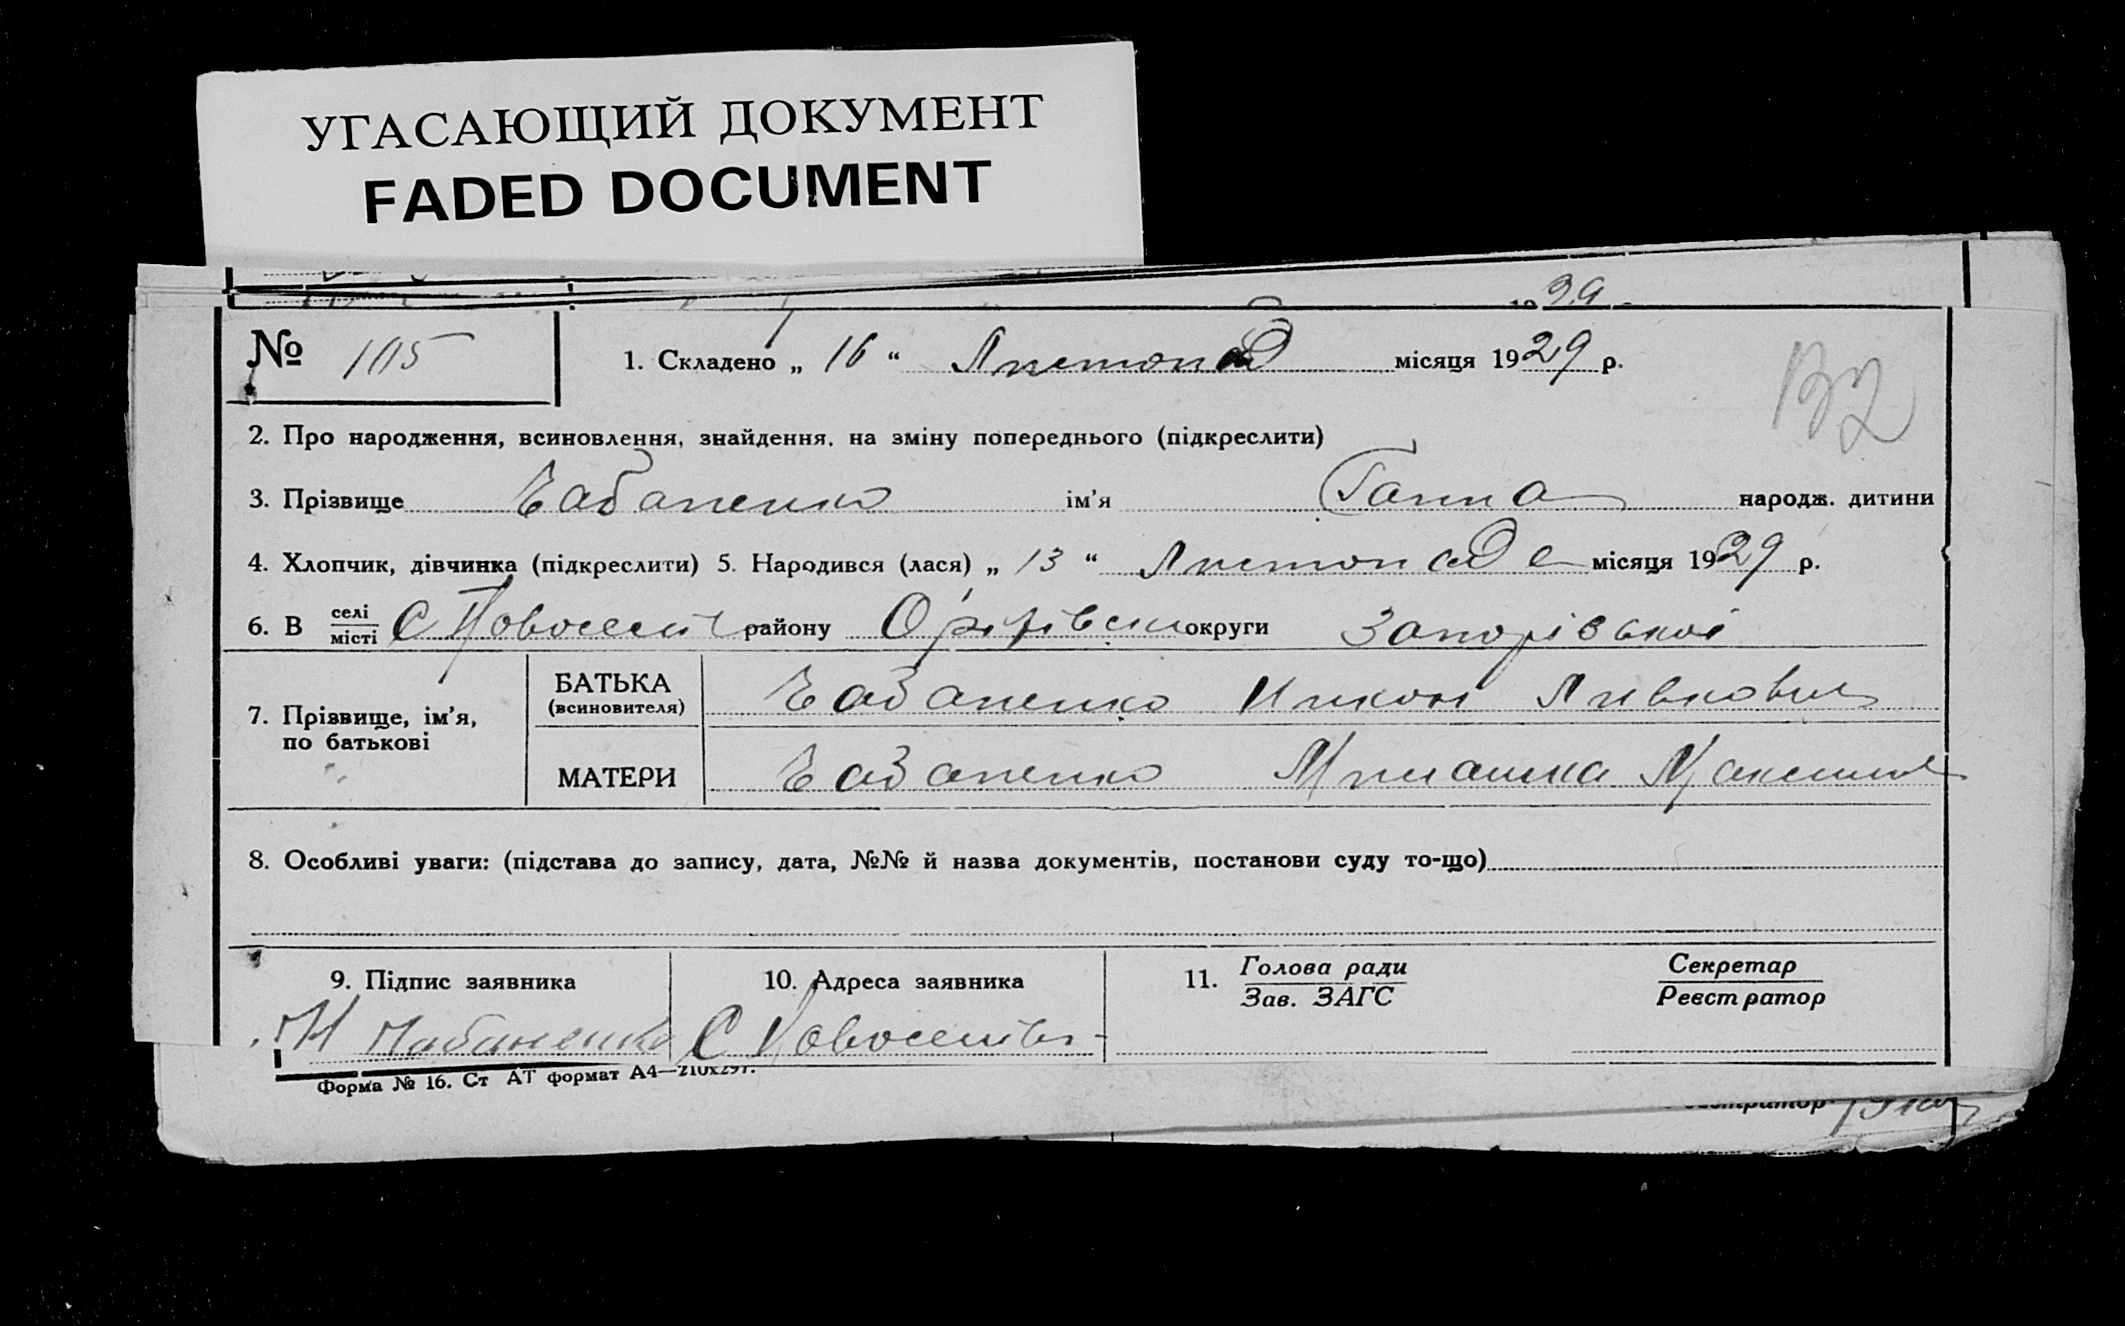 УГАСАЮЩИЙ ДОКУМЕНТ
FADED DOCUMENT
29
№ 105
1. Складено „ 16 “ Листопад місяця 1929 р.
2. Про народження, всиновлення, знайдення, на зміну попереднього (підкреслити)
3. Прізвище Чабаненко ім’я Ганна народж. дитини
4. Хлопчик, дівчинка (підкреслити) 5. Народився (лася) „ 13 “ Листопада місяця 1929 р.
6. В селі місті С Новоселів району округи Запорізької
7. Прізвище, ім’я, по батькові
БАТЬКА (всиновителя) Чабаненко Никон
МАТЕРИ Чабаненко
8. Особливі уваги: (підстава до запису, дата, №№ й назва документів, постанови суду то-що)
9. Підпис заявника
10. Адреса заявника
11. Голова ради Зав. ЗАГС
Секретар Реєстратор
Н Чабаненко С Новоселівк
Форма № 16. Ст АТ формат А4—210x297.